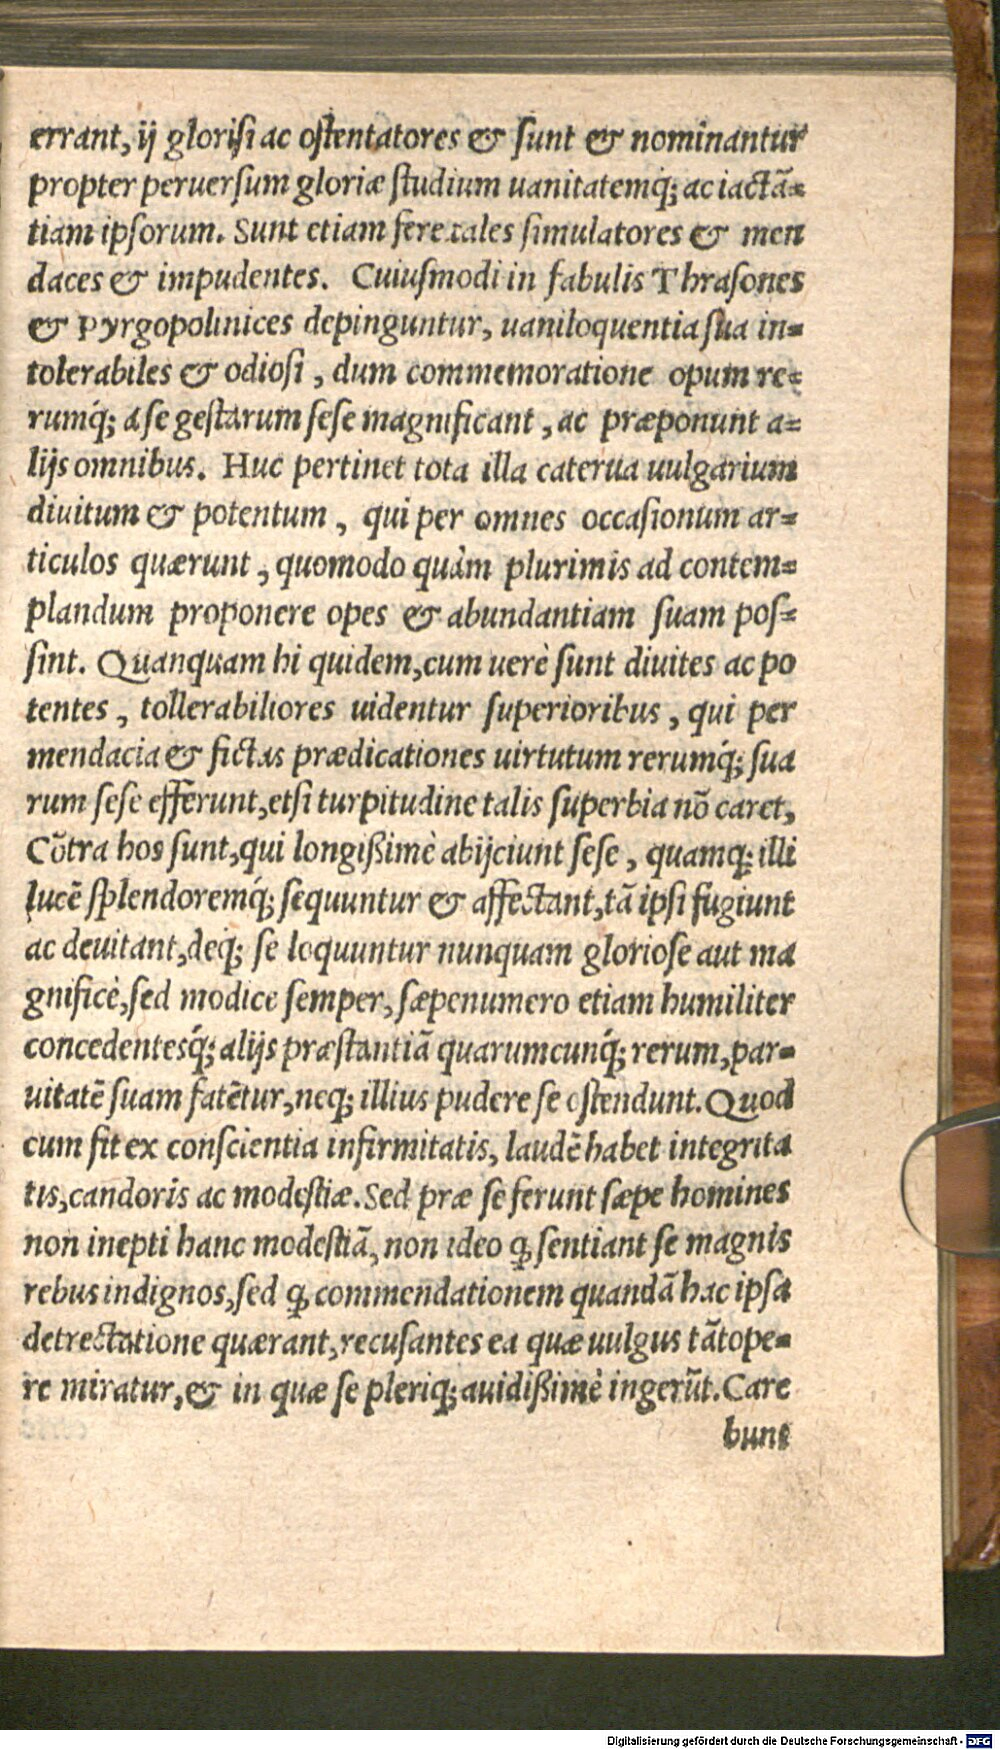 errant, ij glorisi ac ostentatores & sunt & nominantur
propter peruersum gloriæ studium uanitatemq́; ac iactã=
tiam ipsorum. Sunt etiam fere tales simulatores & men
daces & impudentes. Cuiusmodi in fabulis Thrasones
& Pyrgopolinices depinguntur, uaniloquentia sua in=
tolerabiles & odiosi, dum commemoratione opum re=
rumq́; a se gestarum sese magnificant, ac præponunt a=
lijs omnibus. Huc pertinet tota illa caterua uulgarium
diuitum & potentum, qui per omnes occasionum ar=
ticulos quærunt, quomodo quàm plurimis ad contem=
plandum proponere opes & abundantiam suam pos=
sint. Quanquam hi quidem, cum uerè sunt diuites ac po
tentes, tollerabiliores uidentur superioribus, qui per
mendacia & fictas prædicationes uirtutum rerumq́; sua
rum sese efferunt, etsi turpitudine talis superbia nõ caret,
Cõtra hos sunt, qui longißimè abijciunt sese, quamq; illi
lucẽ splendoremq́; sequuntur & affectant, tã ipsi fugiunt
ac deuitant, deq́; se loquuntur nunquam gloriose aut ma
gnificè, sed modice semper, sæpenumero etiam humiliter
concedentesq́; alijs præstantiã quarumcunq́; rerum, par=
uitatẽ suam fatẽtur, neq; illius pudere se ostendunt. Quod
cum fit ex conscientia infirmitatis, laudẽ habet integrita
tis, candoris ac modestiæ. Sed præ se ferunt sæpe homines
non inepti hanc modestiã, non ideo ꝙ sentiant se magnis
rebus indignos, sed ꝙ commendationem quandã hac ipsa
detrectatione quærant, recusantes ea quæ uulgus tãtope=
re miratur, & in quæ se pleriq; auidißimè ingerũt. Care
bunt
Digitalisierung gefördert durch die Deutsche Forschungsgemeinschaft - DFG